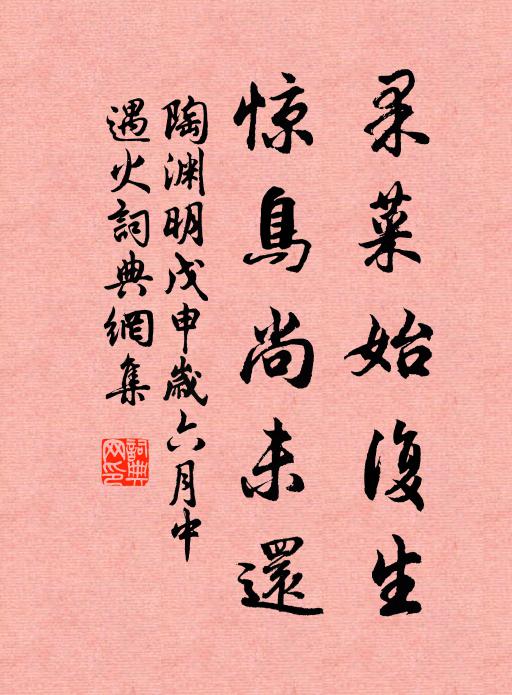 果菜始復生
惊鳥尚未還
陶渊明戊申歲六月中
遇火詞典網集
詞典
网印